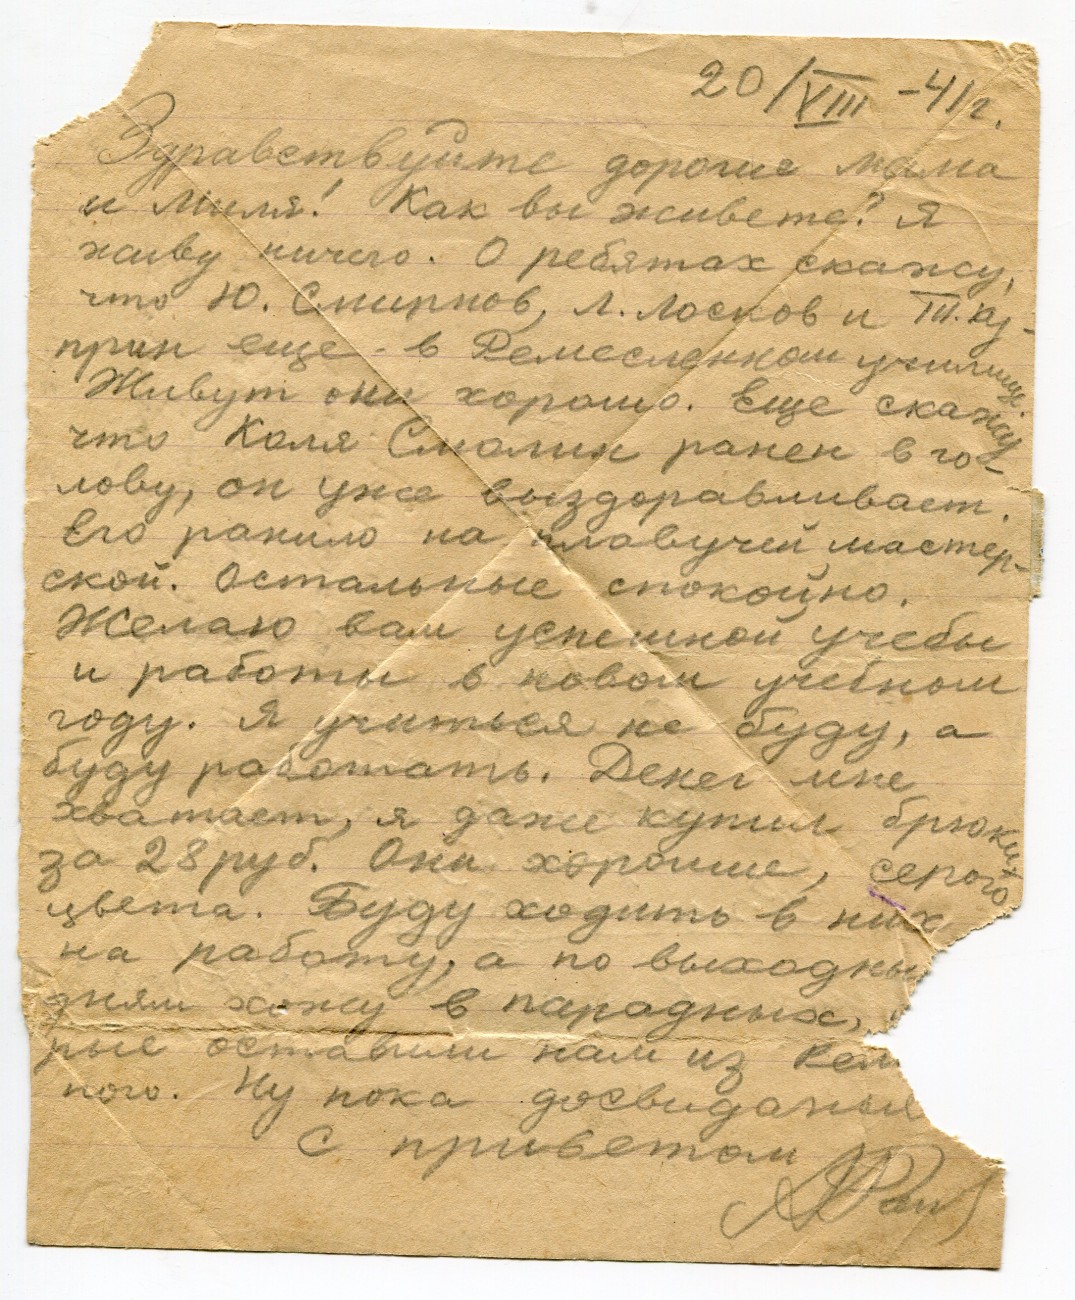 20/VIII -41г.
Здравствуйте дорогие мама
и Миля! Как вы живете? Я
живу ничего. О ребятах скажу,
что Ю. Смирнов, Л. Лосков и Ш. Ку-
прин еще в Ремесленном училище.
Живут они хорошо. Еще скажу
что Коля Смолин ранен в го-
лову, он уже выздоравливает.
Его ранило на плавучей мастер-
ской. Остальные спокойно.
Желаю вам успешной учебы
и работы в новом учебном
году. Я учиться не буду, а
буду работать. Денег мне
хватает, я даже купил брюки
за 28 руб. Они хорошие, серого
цвета. Буду ходить в них
на работу, а по выходны
дням хожу в парадных,
рые оставили нам из Рем
ного. Ну пока досвиданья
С приветом